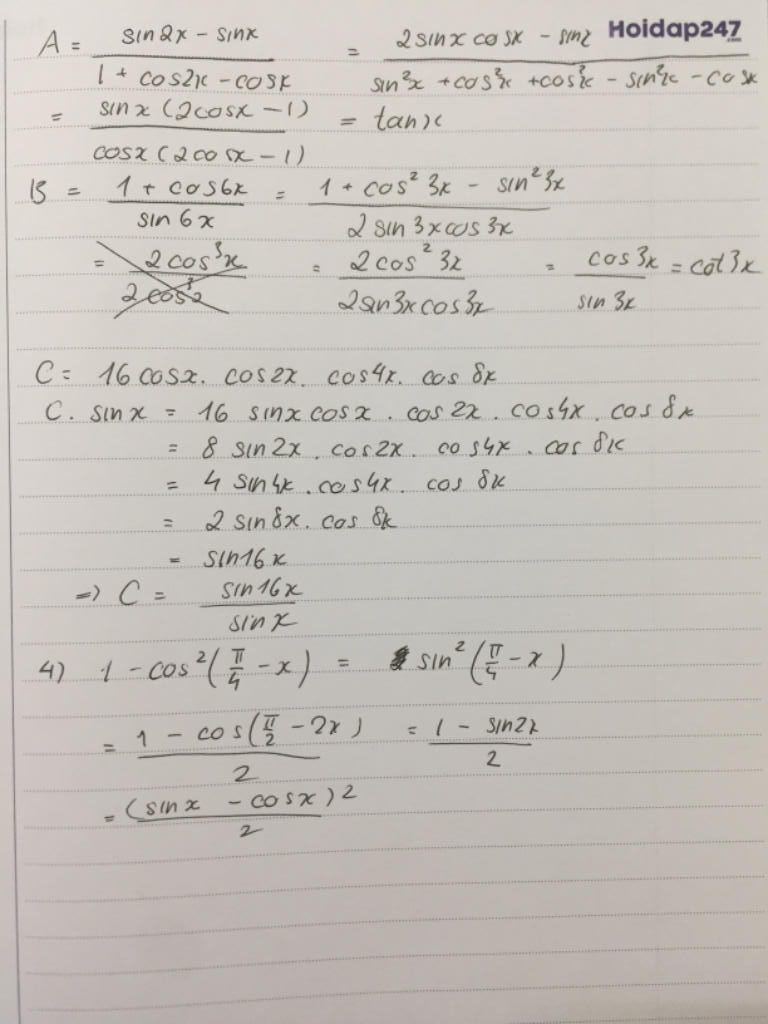 Hoidap247
.vn
A = (sin2x - sinx)/(1 + cos2x - cosx) = (2sinx cosx - sinx)/(sin²x + cos²x + cos²x - sin²x - cosx)
= (sinx (2cosx - 1))/(cosx (2cosx - 1)) = tanx
B = (1 + cos6x)/(sin 6x) = (1 + cos² 3x - sin² 3x)/(2 sin 3x cos 3x)
= = (2cos² 3x)/(2sin3x cos3x) = (cos3x)/(sin 3x) = cot3x
C = 16cosx. cos2x. cos4x. cos 8x
C. sinx = 16 sinx cosx . cos 2x . cos4x . cos 8x
= 8 sin2x . cos2x. cos4x . cos 8x
= 4 sin4x . cos4x. cos 8x
= 2 sin8x. cos 8x
= sin16x
=> C = (sin16x)/(sinx)
4) 1 - cos²(π/4 - x) = sin²(π/4 - x)
= (1 - cos(π/2 - 2x))/2 = (1 - sin2x)/2
= (sinx - cosx)²/2